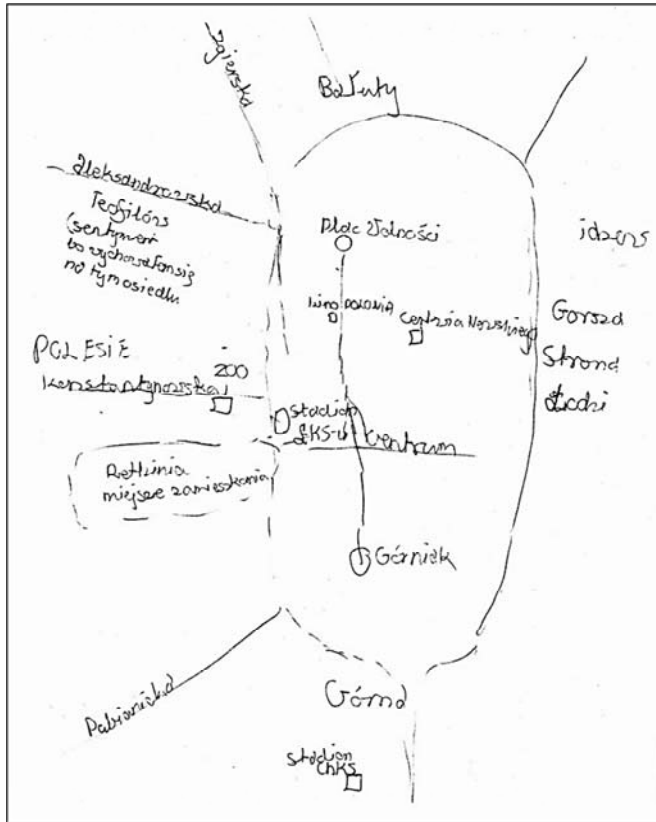 Zgierska
Bałuty
Aleksandrowska
Teofilów
(sentyment
bo wychowałem się
na tym osiedlu
Plac Wolności
kino POLONIA
Gorsza
Strona
Łodzi
POLESIE
ZOO
Konstantynowska
Stadion
ŁKS-u
Centrum
Retkinia
miejsce zamieszkania
Górniak
Pabianicka
Górna
Stadion
ChKS